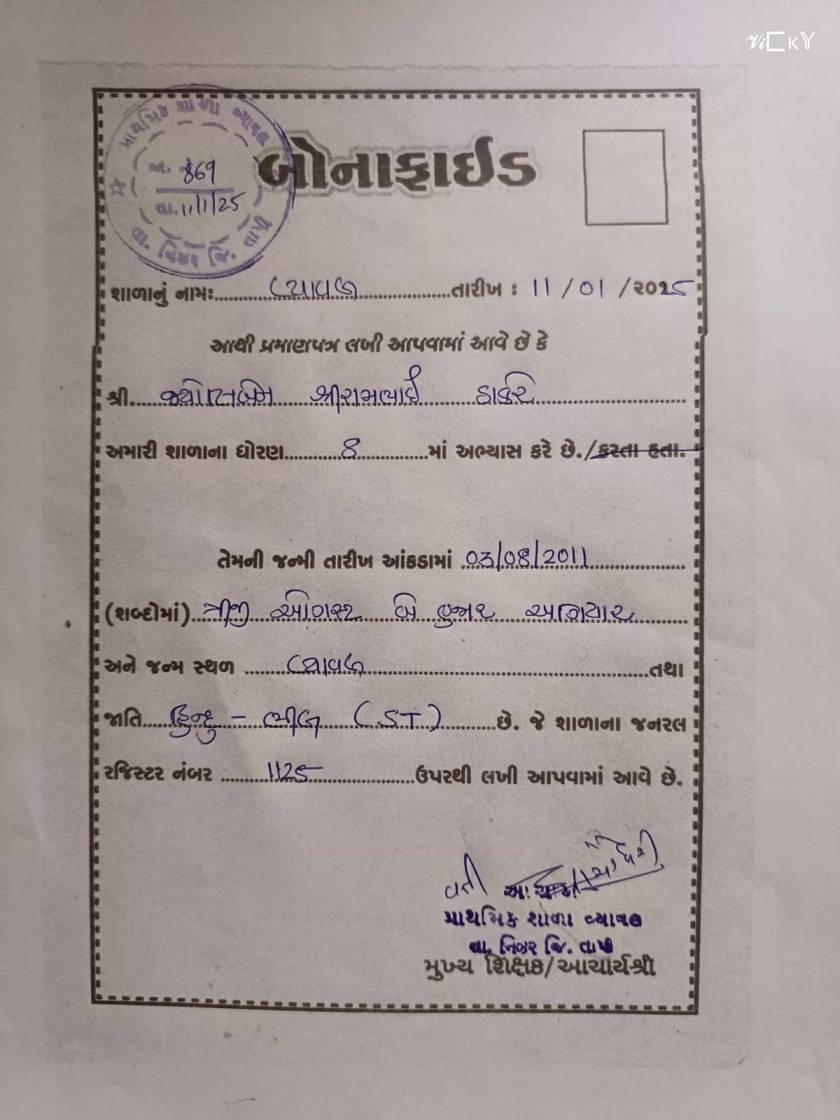 ViCKY
પ્રાથમિક શાળા વ્યાવલ
નં. 869
તા. 11/1/25
તા. નિઝર જિ. તાપી
બોનાફાઈડ
શાળાનું નામઃ વ્યાવલ તારીખ : 11 / 01 / ૨૦૨5
આથી પ્રમાણપત્ર લખી આપવામાં આવે છે કે
શ્રી શ્રીરામભાઈ ઠાકરે
અમારી શાળાના ધોરણ 8 માં અભ્યાસ કરે છે./કરતા હતા.
તેમની જન્મી તારીખ આંકડામાં 03/08/2011
(શબ્દોમાં) ત્રીજી ઓગસ્ટ બે હજાર અગિયાર
અને જન્મ સ્થળ વ્યાવલ તથા
જાતિ હિન્દુ - ભીલ (ST) છે. જે શાળાના જનરલ
રજિસ્ટર નંબર 1125 ઉપરથી લખી આપવામાં આવે છે.
વતી
પ્રાથમિક શાળા વ્યાવલ
તા. નિઝર જિ. તાપી
મુખ્ય શિક્ષક/આચાર્યશ્રી